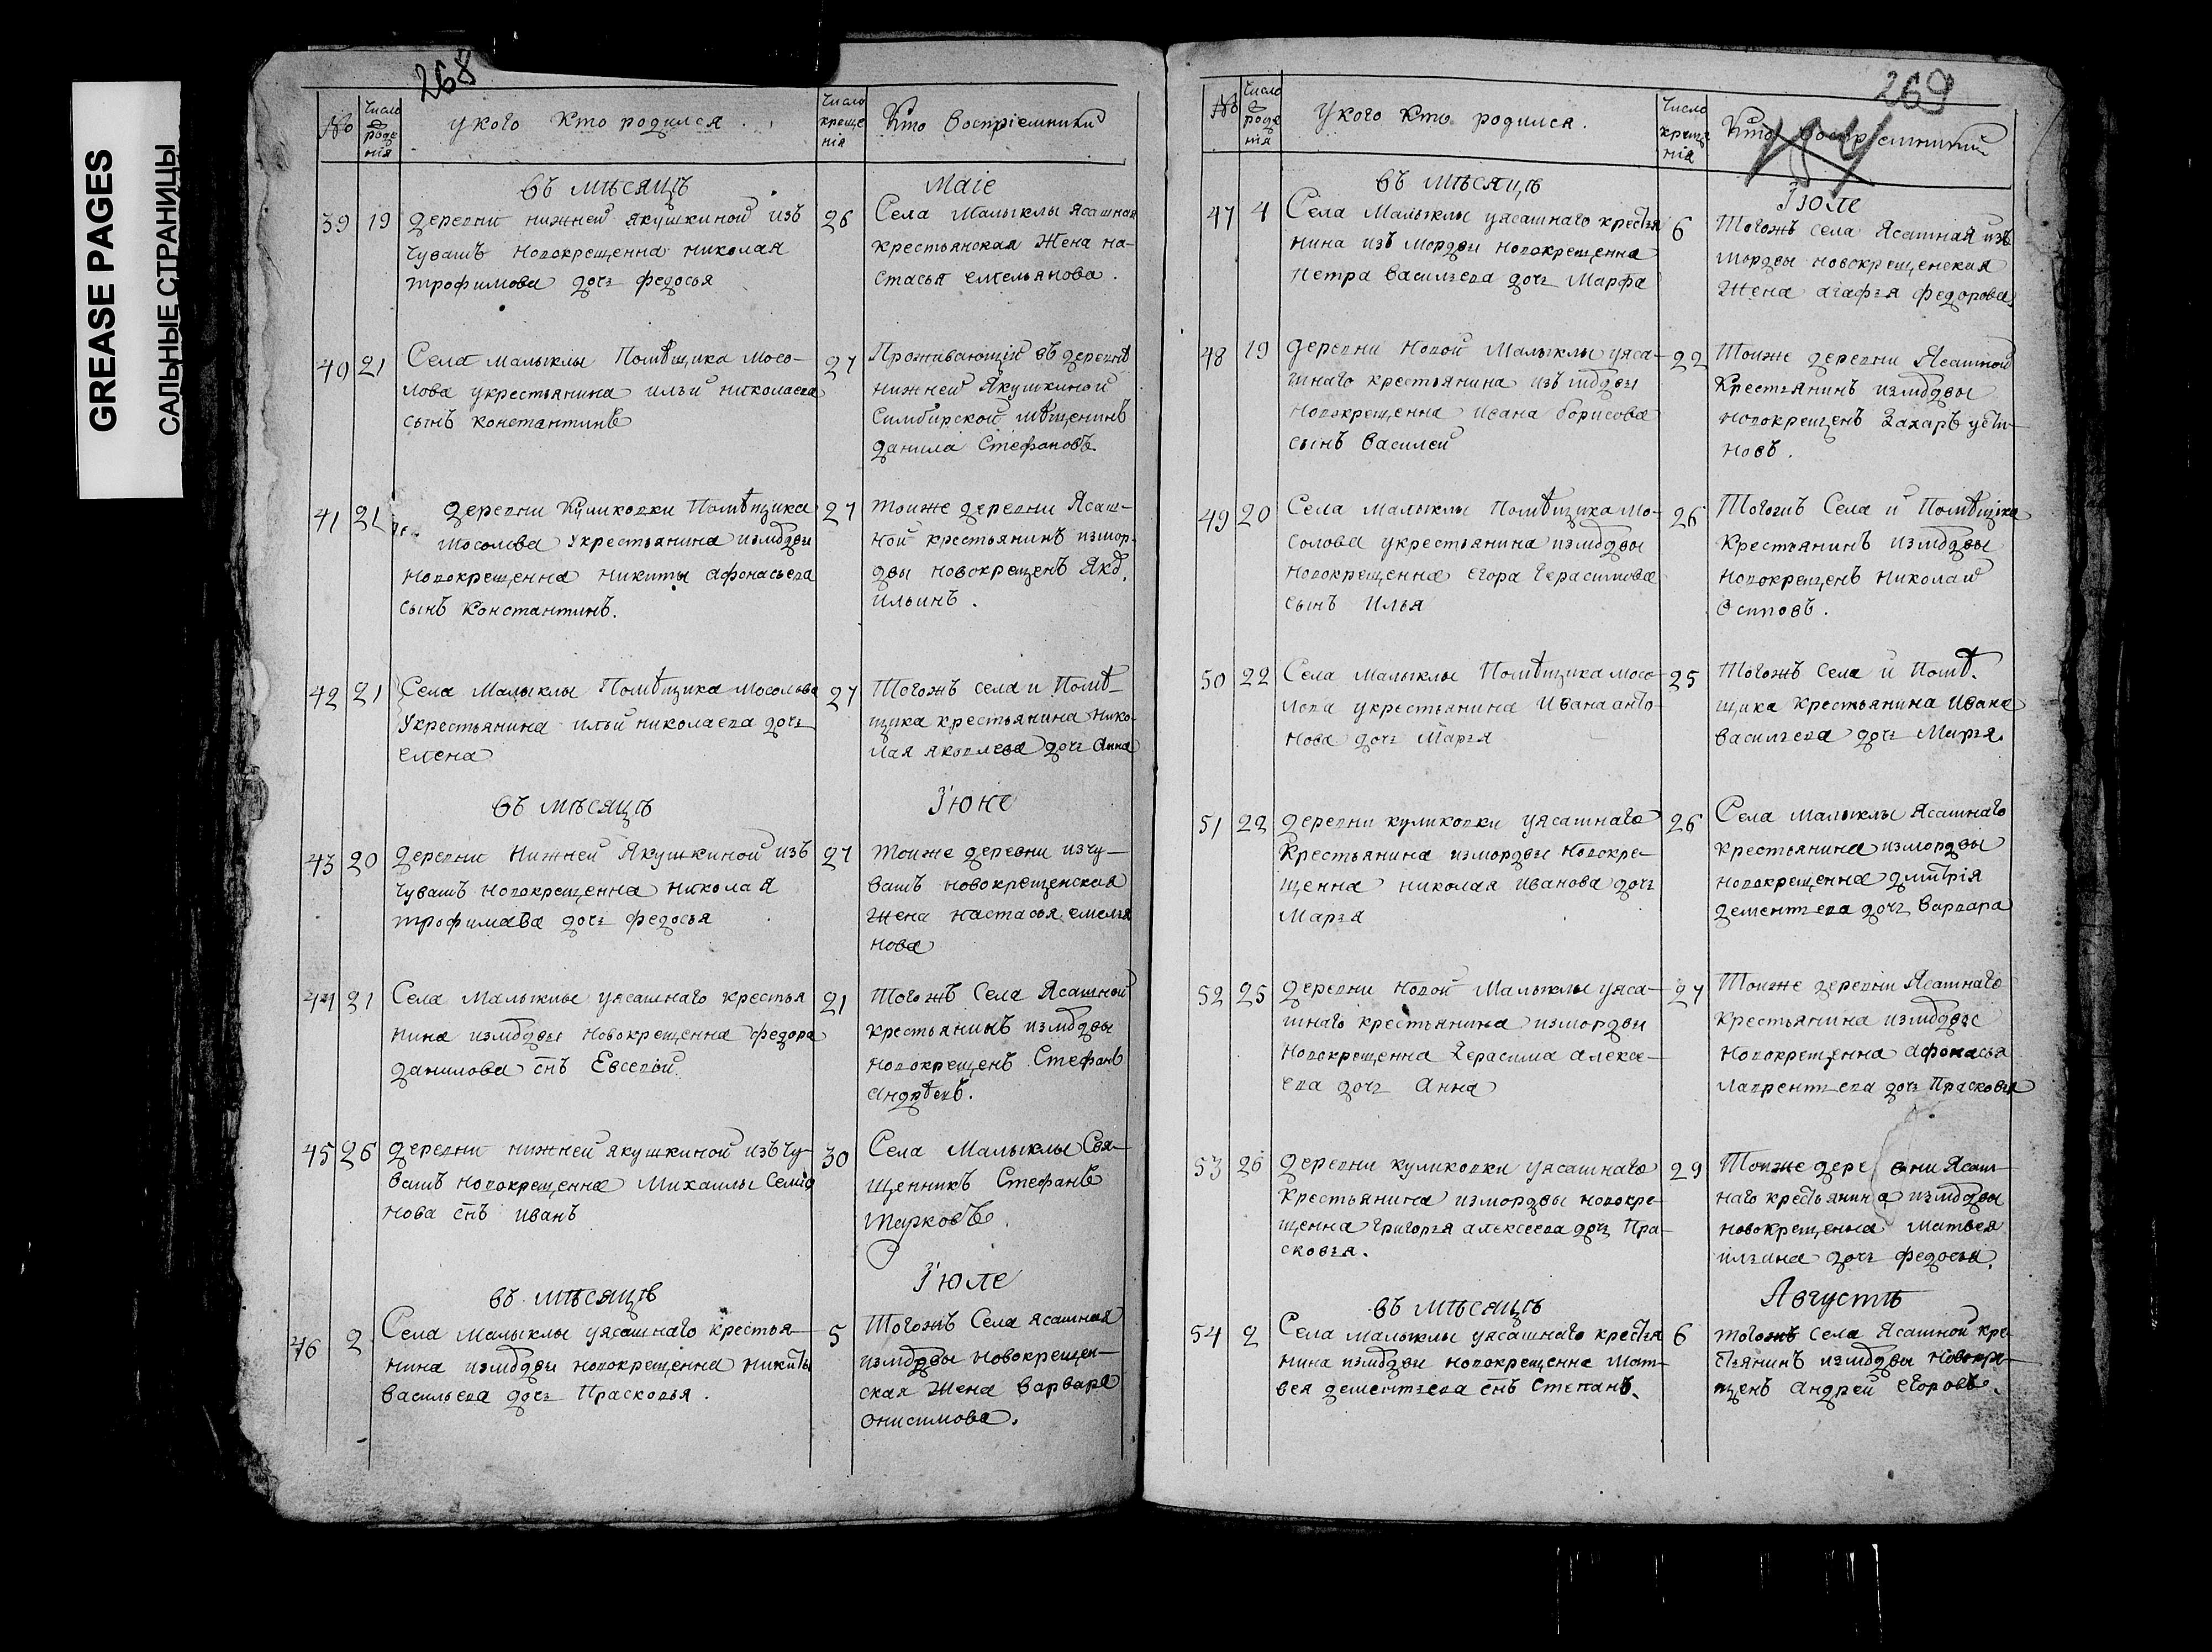 GREASE PAGES
САЛЬНЫЕ СТРАНИЦЫ
268
№
Число роде нія
У кого кто родился.
Число креще нія
Кто восприемники
въ мѣсяцѣ Маіе
39 19 деревни нижней якушкиной изъ
чувашъ новокрещенна николая
трофимова дочь федосья
26 Села Малыклы ясашная
крестьянская жена на-
стасья емельянова.
40 21 Села малыклы Помѣщика мосо-
лова укрестьянина ильи николаева
сынъ константинъ
27 Проживающій въ деревнѣ
нижней Якушкиной
Симбирской мѣщенинъ
данила Стефановъ
41 21 деревни Куликовки Помѣщика
мосолова укрестьянина измордвы
новокрещенна никиты афонасьева
сынъ константинъ.
27 тоиже деревни Ясаш-
ной крестьянинъ измор-
двы новокрещенъ Яков
ильинъ.
42 21 Села Малыклы Помѣщика мосолова
Укрестьянина ильи николаева дочь
елена
27 Тогожъ села и Помѣ-
щика крестьянина Нико-
лая яковлева дочь Анна
въ мѣсяцѣ Іюне
43 20 деревни Нижней Якушкиной изъ
чувашъ новокрещенна николая
трофимава дочь федосья
27 тоиже деревни изчу-
вашъ новокрещенская
жена настасья емелья
нова
44 21 Села Малыклы уясашнаго крестья
нина измордвы новокрещенна федора
данилова снъ Евсевій
21 Тогожъ Села Ясашной
крестьянинъ измордвы
новокрещенъ Стефанъ
андрѣевъ.
45 26 деревни нижней якушкиной изъ чу-
вашъ новокрещенна Михаилы Семіо
нова снъ иванъ
30 Села Малыклы Свя-
щенникъ Стефанъ
Марковъ
въ мѣсяцѣ Іюле
46 2 Села малыклы уясашнаго крестья-
нина измордвы новокрещенна никиты
васильева дочь Прасковья.
5 Тогожъ Села ясашная
измордвы новокрещен-
ская жена варвара
онисимова.
269
№
Число роде нія
У кого кто родился.
Число креще нія
Кто восприемники
въ мѣсяцѣ Іюле
47 4 Села Малыклы уясашнаго крестья
нина изъ мордвы новокрещенна
петра васильева дочь Марфа
6 Тогожъ села Ясашная изъ
мордвы новокрещенская
жена агафья федорова
48 19 деревни новой Малыклы уяса-
шнаго крестьянина изъ мордвы
новокрещенна ивана борисова
сынъ василей
22 Тоиже деревни Ясашной
крестьянинъ измордвы
новокрещенъ захаръ усти-
новъ.
49 20 Села малыклы Помѣщика мо-
солова укрестьянина измордвы
новокрещенна егора герасимова
сынъ илья
26 Тогожъ Села и Помѣщика
крестьянинъ измордвы
новокрещенъ николай
Осиповъ.
50 22 Села малыклы Помѣщика мосо-
лова укрестьянина ивана анто-
нова дочь Марья
25 Тогожъ Села и Помѣ.
щика крестьянина ивана
васильева дочь Марья.
51 22 деревни куликовки уясашнаго
крестьянина измордвы новокре-
щенна николая иванова дочь
Марья
26 Села малыклы Ясашнаго
крестьянина измордвы
новокрещенна дмитрія
дементьева дочь варвара
52 25 деревни новой Малыклы уяса-
шнаго крестьянина измордвы
новокрещенна герасима алексе-
ева дочь анна
27 Тоиже деревни Ясашнаго
крестьянина измордвы
новокрещенна афонасья
лаврентьева дочь Прасковья
53 26 деревни куликовки уясашнаго
крестьянина измордвы новокре-
щенна григорья алексеева дочь Пра-
сковья.
29 Тоиже деревни Ясаш-
наго крестьянина измордвы
новокрещенна матвея
ильина дочь федосья.
въ мѣсяцѣ Августѣ
54 2 Села малыклы уясашнаго крестья
нина измордвы новокрещенне мат-
вея дементьева снъ степанъ.
6 тогожъ села Ясашной кре-
стьянинъ измордвы новокре-
щенъ андрей егоровъ.